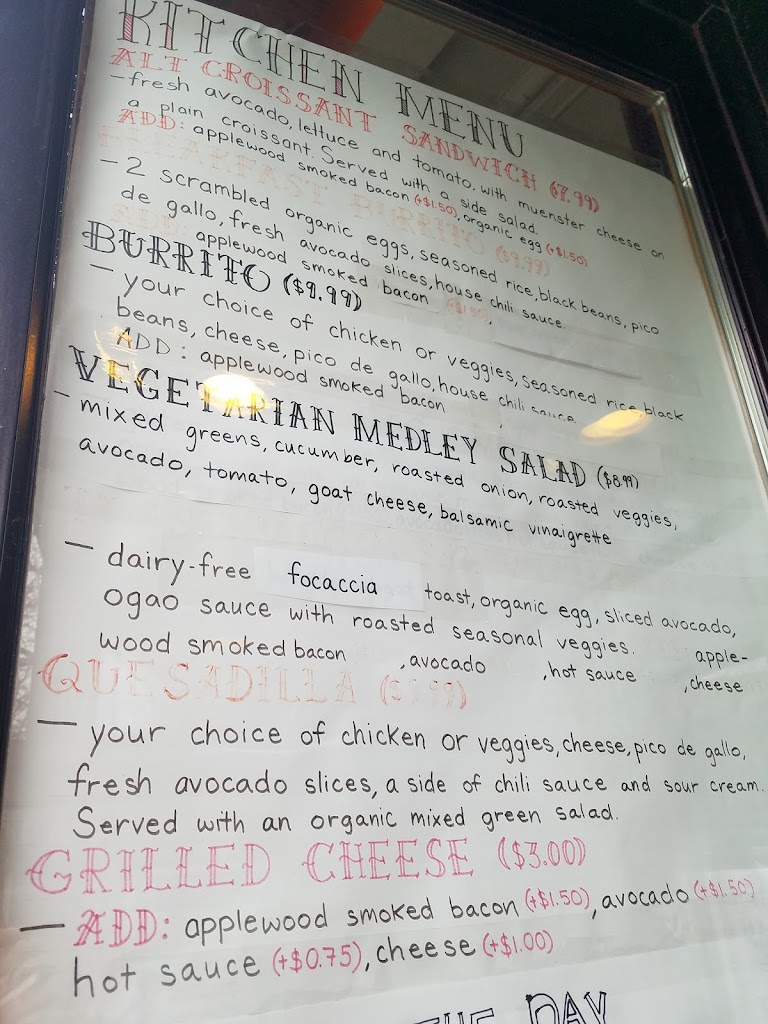 KITCHEN MENU
ALT CROISSANT SANDWICH ($7.99)
- fresh avocado, lettuce and tomato, with muenster cheese on
a plain croissant. Served with a side salad.
ADD: applewood smoked bacon (+$1.50), organic egg (+$1.50)
BREAKFAST BURRITO ($9.99)
- 2 scrambled organic eggs, seasoned rice, black beans, pico
de gallo, fresh avocado slices, house chili sauce.
ADD: applewood smoked bacon (+$1.50),
BURRITO ($9.99)
- your choice of chicken or veggies, seasoned rice, black
beans, cheese, pico de gallo, house chili sauce
ADD: applewood smoked bacon ,
VEGETARIAN MEDLEY SALAD ($8.99)
- mixed greens, cucumber, roasted onion, roasted veggies,
avocado, tomato, goat cheese, balsamic vinaigrette
- dairy-free focaccia toast, organic egg, sliced avocado,
ogao sauce with roasted seasonal veggies. apple-
wood smoked bacon , avocado , hot sauce , cheese
QUESADILLA
- your choice of chicken or veggies, cheese, pico de gallo,
fresh avocado slices, a side of chili sauce and sour cream.
Served with an organic mixed green salad.
GRILLED CHEESE ($3.00)
- ADD: applewood smoked bacon (+$1.50), avocado (+$1.50)
hot sauce (+$0.75), cheese (+$1.00)
THE DAY